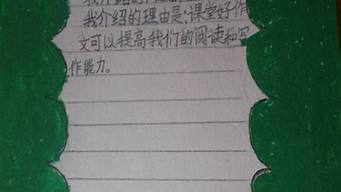 我介绍的理由是:课堂好作
文可以提高我们的阅读和写
作能力。